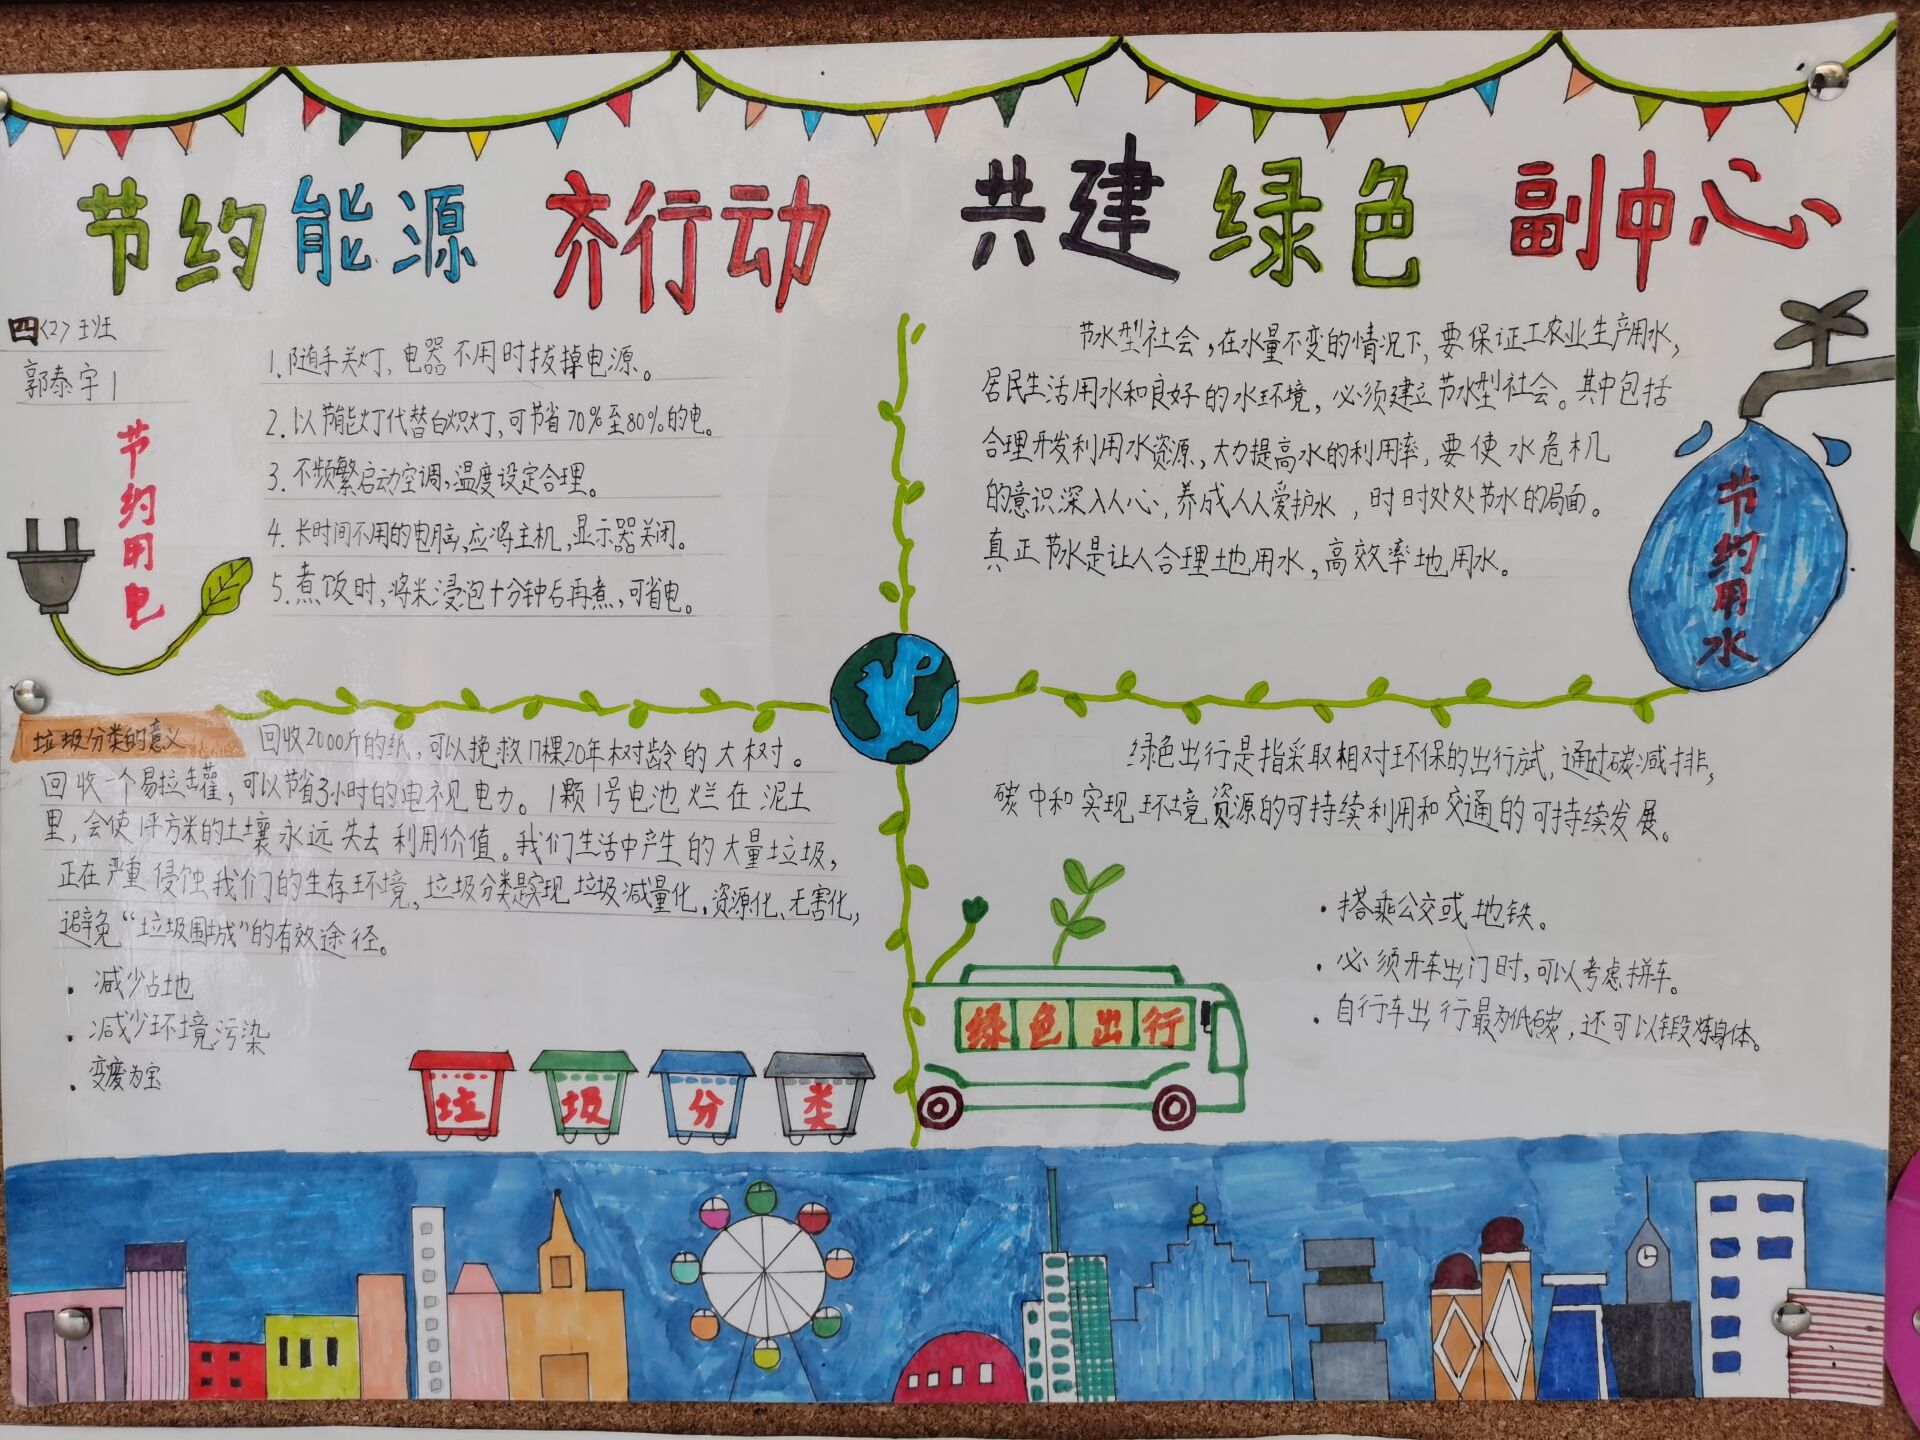 节约能源 齐行动 共建绿色 副中心
四<2>班
郭泰宇
节约用电
1.随手关灯,电器不用时拔掉电源。
2.以节能灯代替白炽灯,可节省70%至80%的电。
3.不频繁启动空调,温度设定合理。
4.长时间不用的电脑,应将主机,显示器关闭。
5.煮饭时,将米浸泡十分钟后再煮,可省电。
节水型社会,在水量不变的情况下,要保证工农业生产用水,
居民生活用水和良好的水环境,必须建立节水型社会。其中包括
合理开发利用水资源,大力提高水的利用率,要使水危机
的意识深入人心,养成人人爱护水,时时处处节水的局面。
真正节水是让人合理地用水,高效率地用水。
节约用水
垃圾分类的意义
回收2000斤的纸,可以挽救17棵20年树龄的大树。
回收一个易拉罐,可以节省3小时的电视电力。1颗1号电池烂在泥土
里,会使1平方米的土壤永远失去利用价值。我们生活中产生的大量垃圾,
正在严重侵蚀我们的生存环境,垃圾分类是实现垃圾减量化,资源化、无害化,
避免“垃圾围城”的有效途径。
·减少占地
·减少环境污染
·变废为宝
垃圾分类
绿色出行是指采取相对环保的出行方式,通过碳减排,
碳中和实现环境资源的可持续利用和交通的可持续发展。
·搭乘公交或地铁。
·必须开车出门时,可以考虑拼车。
·自行车出行最为低碳,还可以锻炼身体。
绿色出行